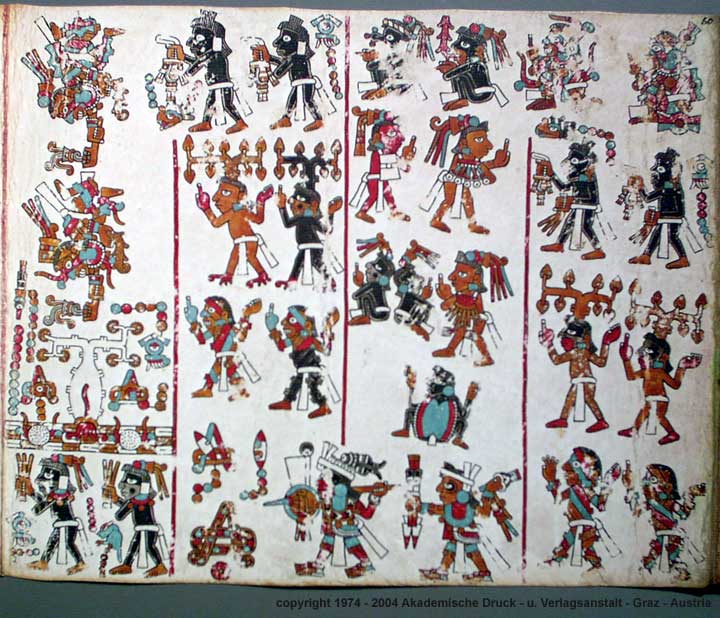 60
copyright 1974 - 2004 Akademische Druck - u. Verlagsanstalt - Graz - Austria